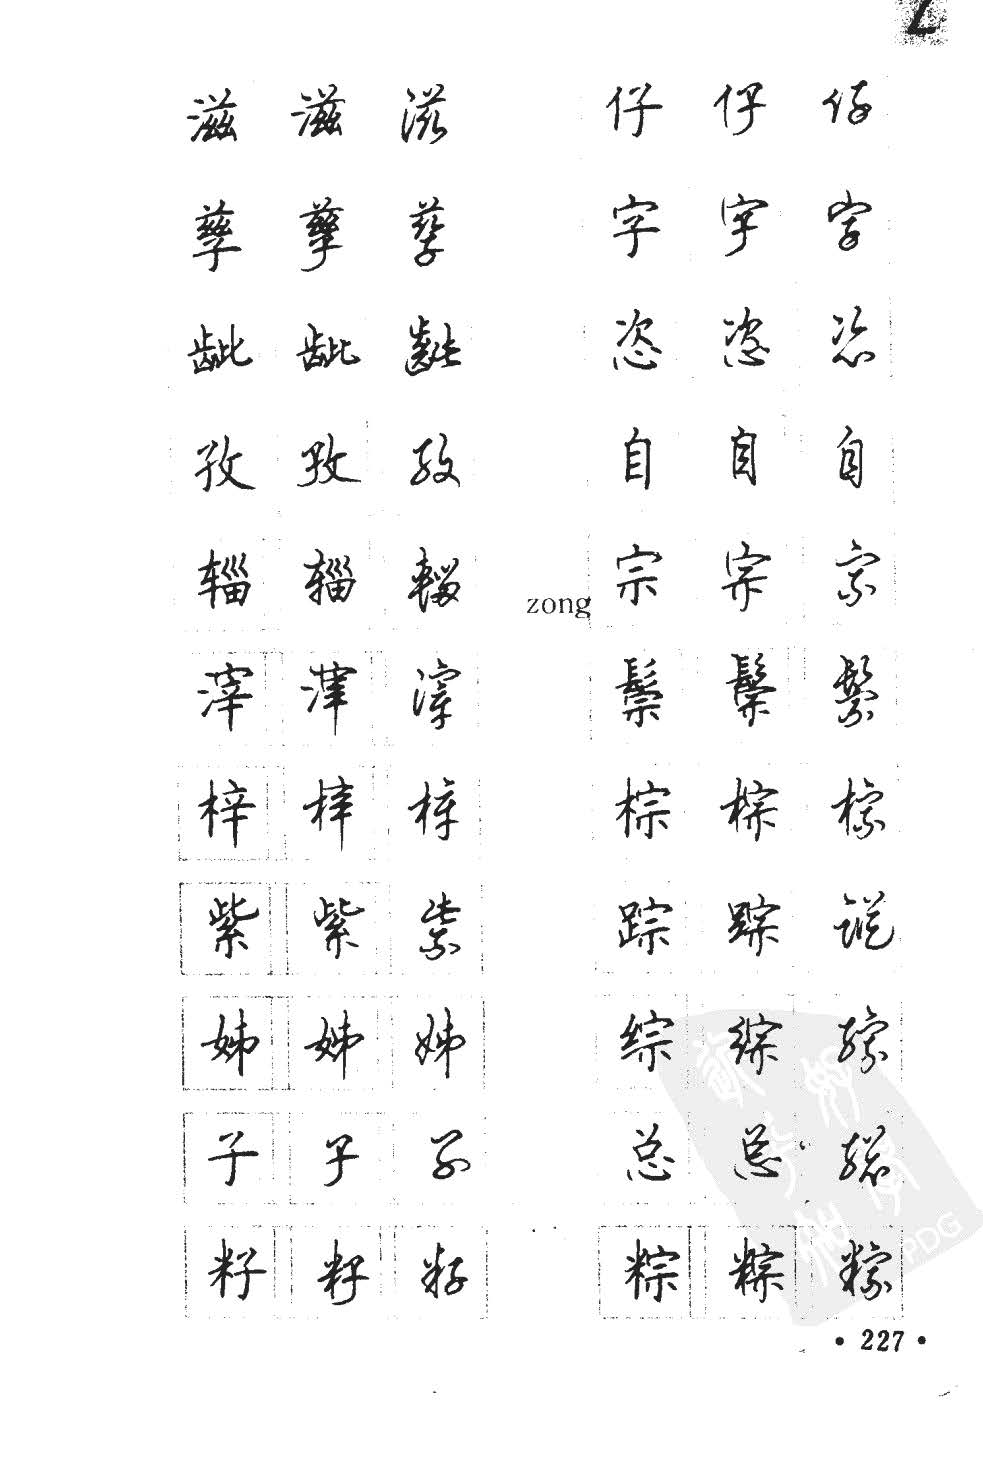 Z
滋 滋 滋
孳 孳 孳
龇 龇 龇
孜 孜 孜
辎 辎 輜
滓 滓 滓
梓 梓 梓
紫 紫 紫
姊 姊 姊
子 子 子
籽 籽 籽
仔 仔 仔
字 字 字
恣 恣 恣
自 自 自
zong
宗 宗 宗
鬃 鬃 鬃
棕 棕 棕
踪 踪 踪
综 综 综
总 总 總
粽 粽 粽
PDG
• 227 •